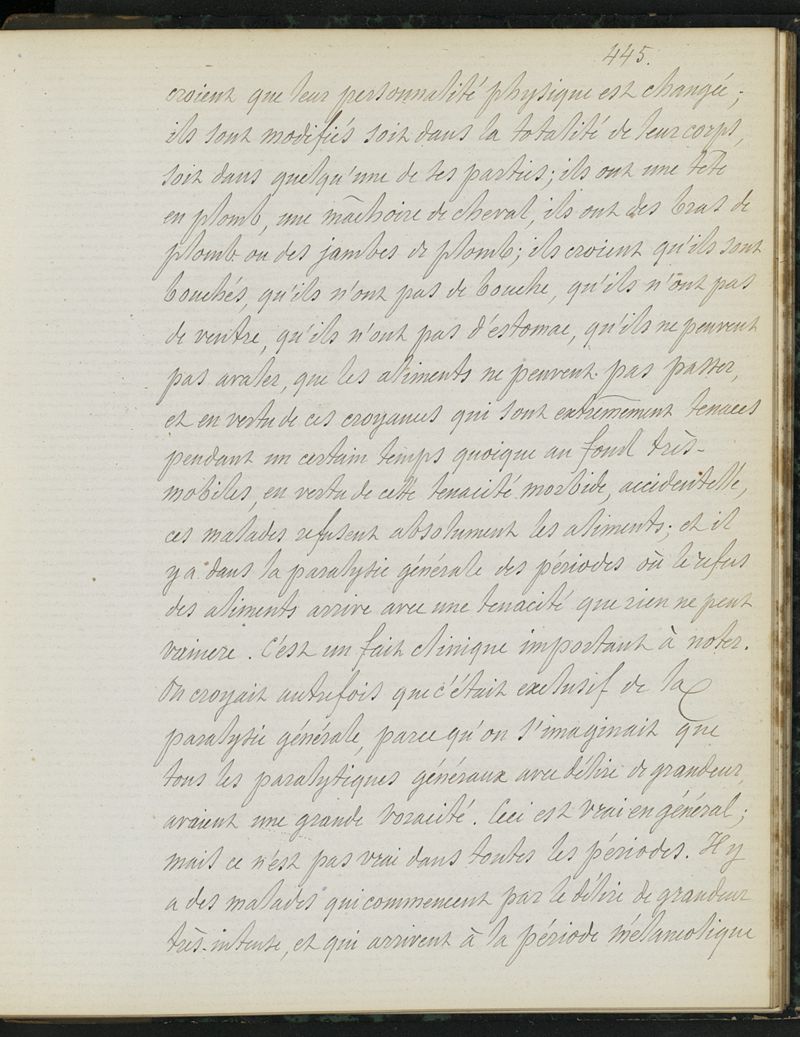 445.
croient que leur personnalité physique est changée ;
ils sont modifiés soit dans la totalité de leur corps,
soit dans quelqu'une de ses parties ; ils ont une tête
en plomb, une mâchoire de cheval, ils ont des bras de
plomb ou des jambes de plomb ; ils croient qu'ils sont
bouchés, qu'ils n'ont pas de bouche, qu'ils n'ont pas
de ventre, qu'ils n'ont pas d'estomac, qu'ils ne peuvent
pas avaler, que les aliments ne peuvent pas passer,
et en vertu de ces croyances qui sont extrêmement tenaces
pendant un certain temps quoique au fond très-
mobiles, en vertu de cette tenacité morbide, accidentelle,
ces malades refusent absolument les aliments ; et il
y a dans la paralysie générale des périodes où le refus
des aliments arrive avec une tenacité que rien ne peut
vaincre. C'est un fait clinique important à noter.
On croyait autrefois que c'était exclusif de la
paralysie générale, parce qu'on s'imaginait que
tous les paralytiques généraux avec délire de grandeur
avaient une grande voracité. Ceci est vrai en général ;
mais ce n'est pas vrai dans toutes les périodes. Il y
a des malades qui commencent par le délire de grandeur
très-intense, et qui arrivent à la période mélancolique